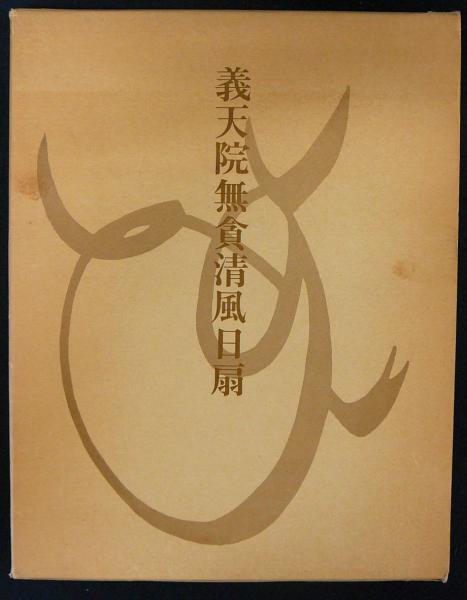 義天院無貪清風日扇